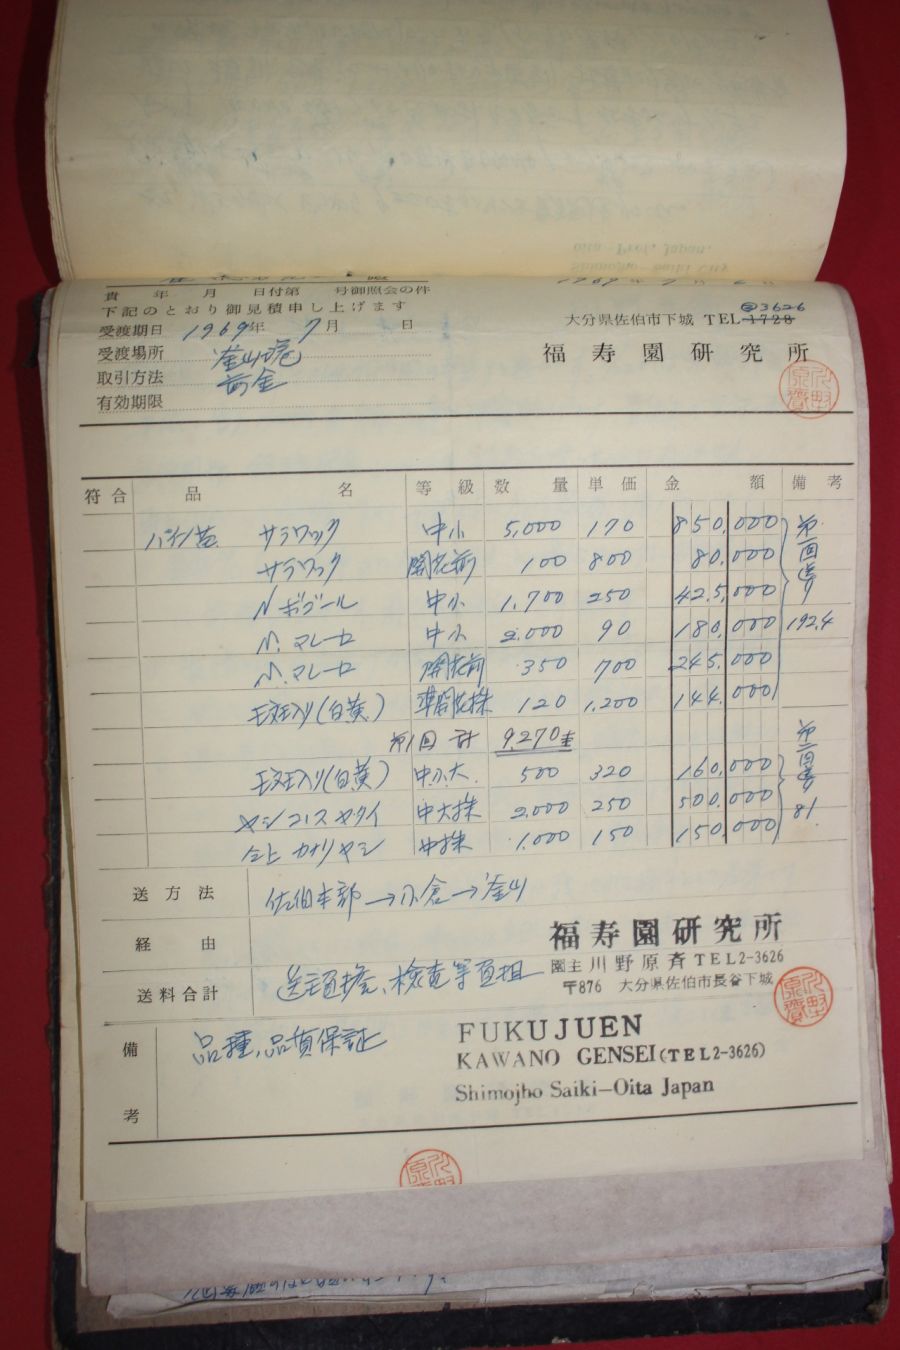 貴 年 月 日付第 号御照会の件
下記のとおり御見積申し上げます
受渡期日 1969年 7月 日
受渡場所 釜山港
取引方法 前金
有効期限
大分県佐伯市下城 TEL 1728 ②3626
福寿園研究所
符合 品名 等級 数量 単価 金額 備考
パイン苗 サラワック 中小 5,000 170 850,000
サラワック 開花前 100 800 80,000
N ボゴール 中小 1,700 250 425,000
N. マレー 中小 2,000 90 180,000
N. マレー 開花前 350 700 245,000
斑入り(白黄) 準開花株 120 1,200 144,000
第一回送り
192.4
第1回 計 9,270
斑入り(白黄) 中小大 500 320 160,000
ヤシ 中大株 2,000 250 500,000
仝上 カナリヤシ 中株 1,000 150 150,000
第二回
81
送方法 佐伯本部→小倉→釜山
経由
送料合計 送主負擔、検査等負担
福寿園研究所
園主 川野原斉 TEL2-3626
〒876 大分県佐伯市長谷下城
備考 品種、品質保証
FUKUJUEN
KAWANO GENSEI(TEL2-3626)
Shimojho Saiki-Oita Japan